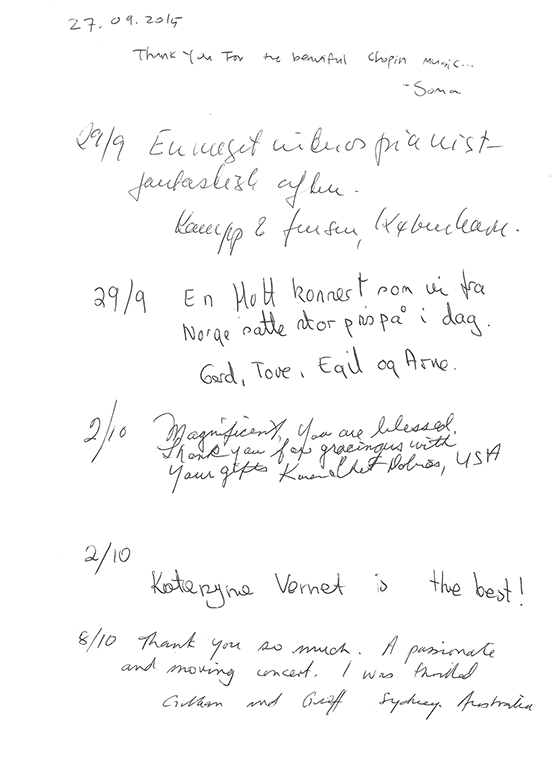 27.09.2015
Thank You For the beautiful Chopin Music...
-Soma
29/9 En meget virtuos pianist-
fantastisk aften.
& Jensen, København.
29/9 En flott konsert som vi fra
Norge satte stor pris på i dag.
Gard, Tove, Egil og Arne.
2/10 Magnificent, you are blessed.
Thank you for gracing us with
your gifts USA
2/10
Katarzyna Vernet is the best!
8/10 Thank you so much. A passionate
and moving concert. I was thrilled
Gillian and Geoff Sydney. Australia